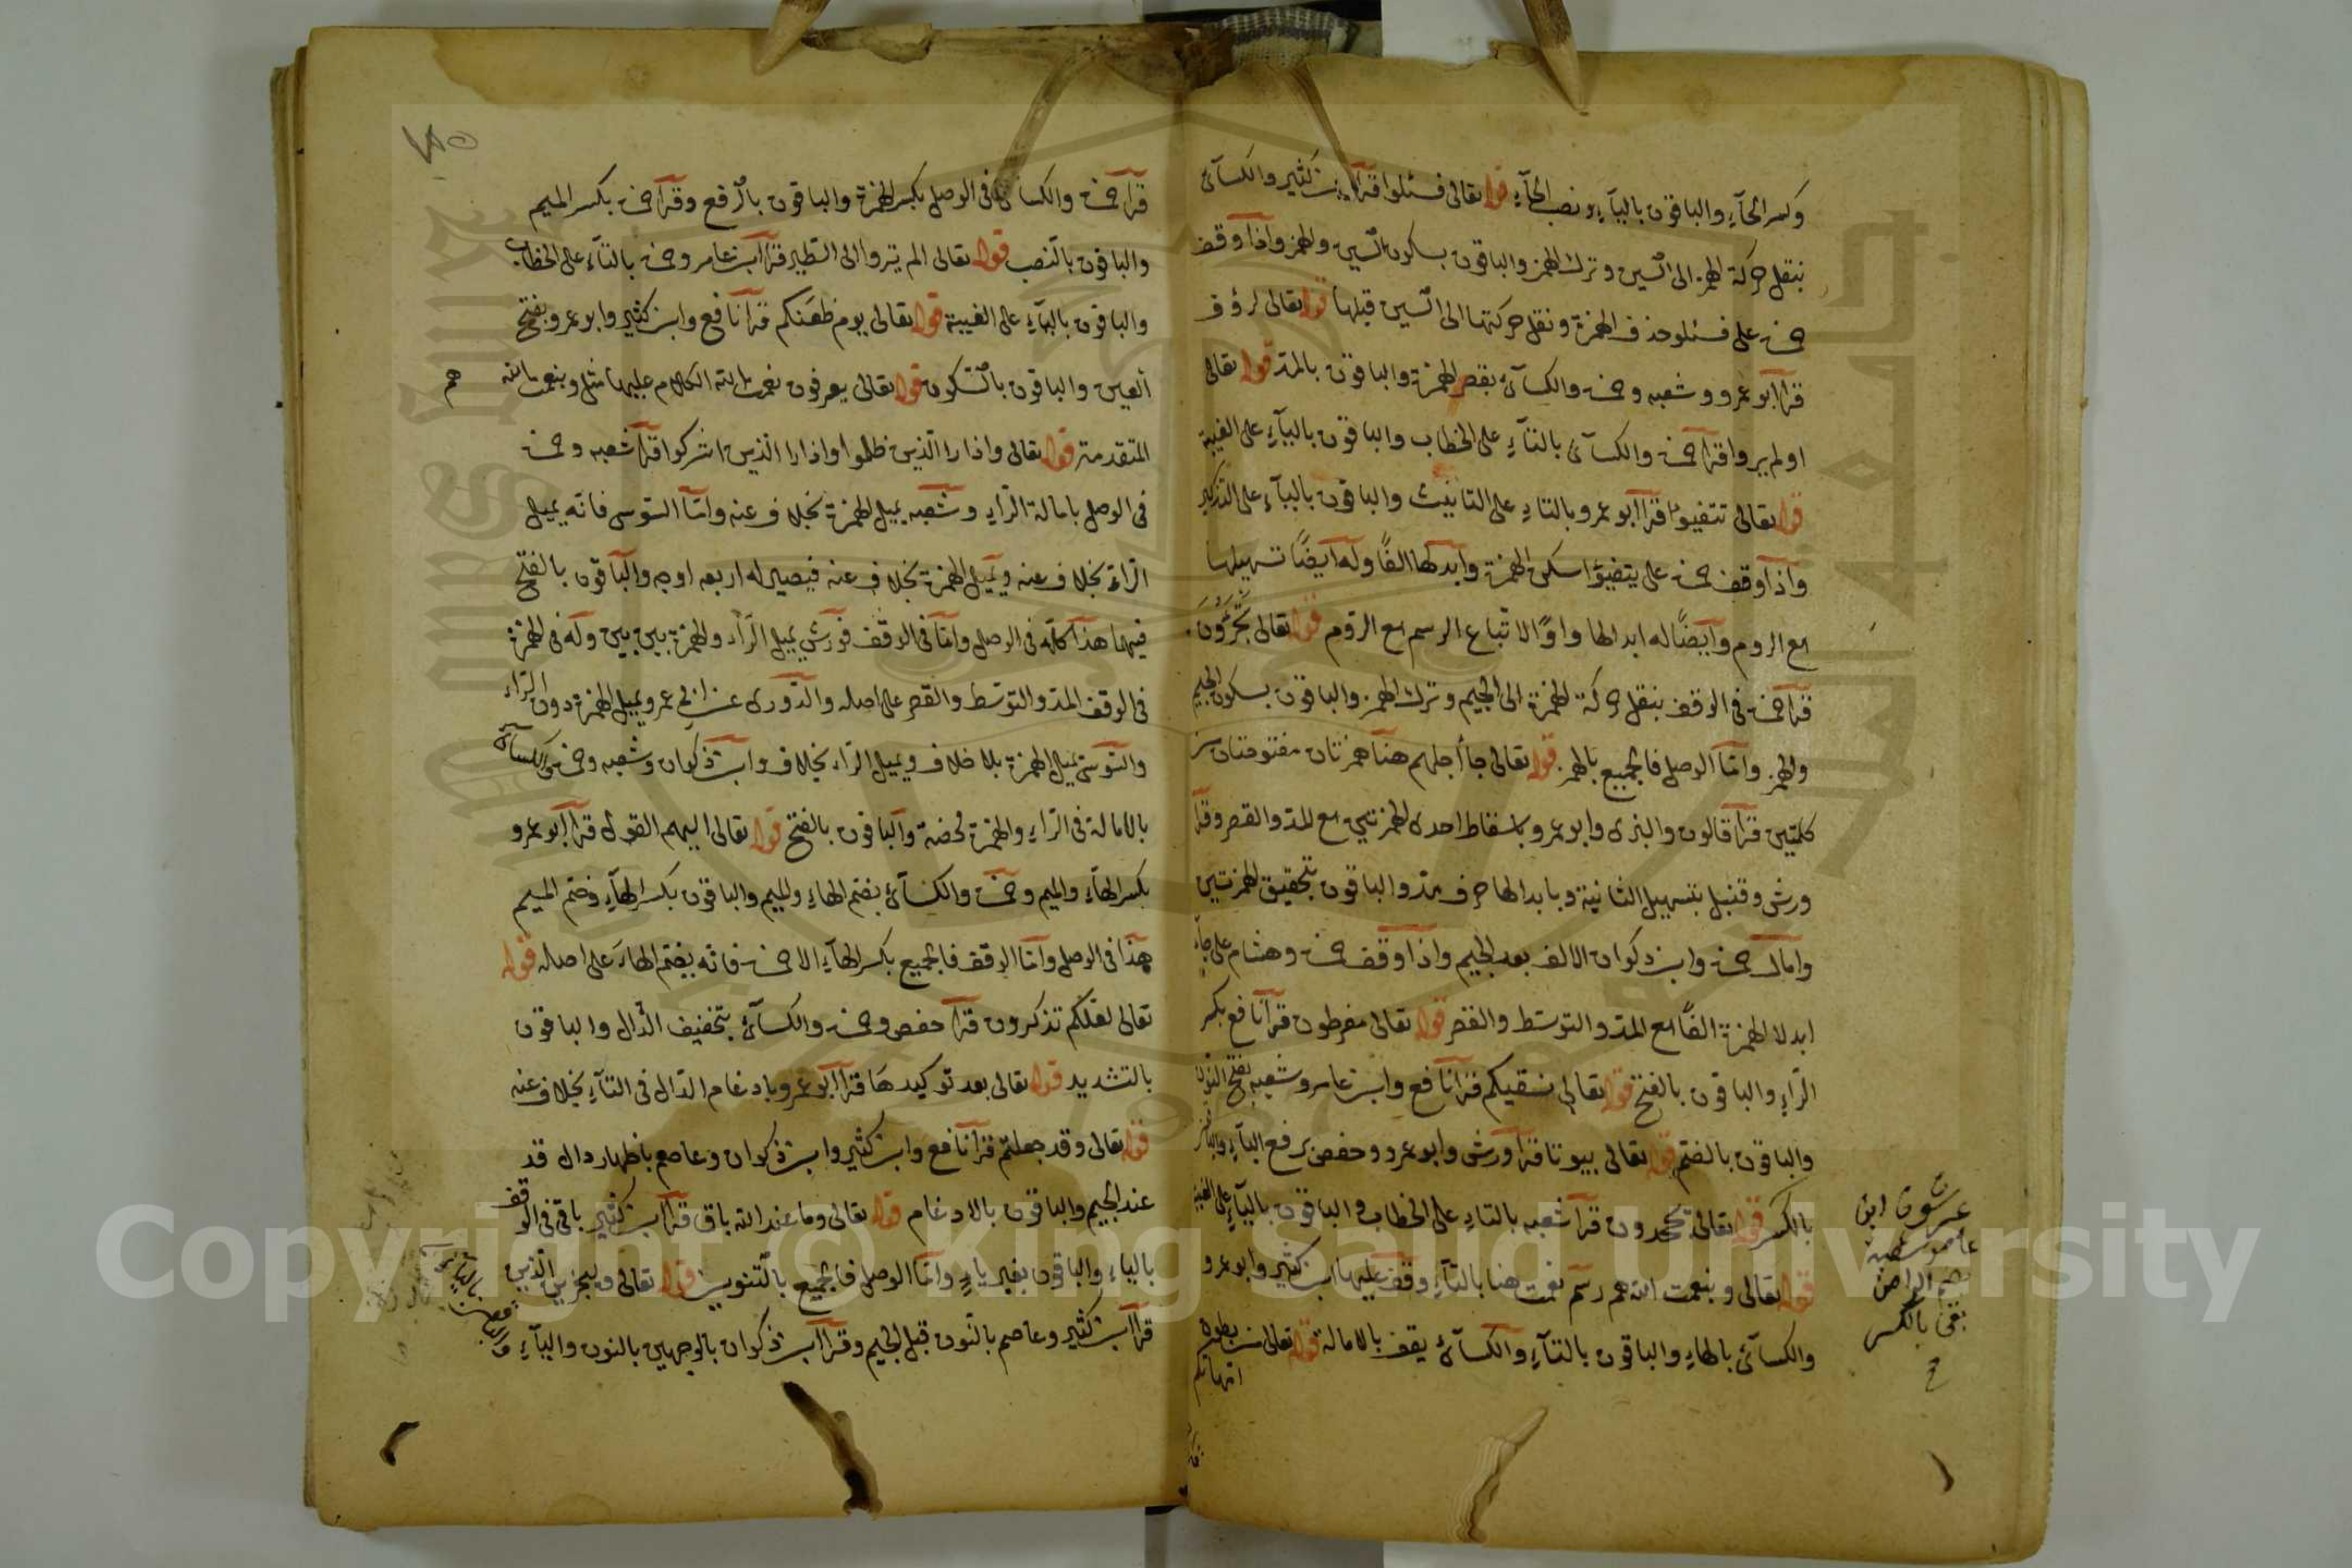 وكسر الحآء والباقون باليآء ونصب الحآء قوله تعالى فسئلوا قرأ ابن كثير والكسآئى
بنقل حركة الهمزة الى السين وترك الهمز والباقون بسكون السين والهمز واذا وقف
حمزة على فسئلو حذف الهمزة ونقل حركتها الى السين قبلها قوله تعالى لرؤف
قرأ ابو عمرو وشعبه وحمزة والكسآئى بقصر الهمزة والباقون بالمد قوله تعالى
اولم يروا قرأ حمزة والكسآئى بالتآء على الخطاب والباقون باليآء على الغيبة
قوله تعالى تتفيؤا قرأ ابو عمرو بالتاء على التانيث والباقون باليآء على التذكير
واذا وقف حمزة على يتفيؤ اسكن الهمزة وابدلها الفًا وله ايضًا تسهيلها
مع الروم وايضًا له ابدالها واوًا لاتباع الرسم مع الروم قوله تعالى تجرون
قرأ حمزة فى الوقف بنقل حركة الهمزة الى الجيم وترك الهمز والباقون بسكون الجيم
والهمز واما الوصل فالجميع بالهمز قوله تعالى جآ أجلهم هنا همزتان مفتوحتان من
كلمتين قرأ قالون والبزى وابو عمرو باسقاط احدى الهمزتين مع المد والقصر وقرأ
ورش وقنبل بتسهيل الثانية وبابدالها حرف مد والباقون بتحقيق الهمزتين
وامال حمزة وابن ذكوان الالف بعد الجيم واذا وقف حمزة وهشام على جآء
ابدلا الهمزة الفًا مع المد والتوسط والقصر قوله تعالى مفرطون قرأ نافع بكسر
الرآء والباقون بالفتح قوله تعالى نسقيكم قرأ نافع وابن عامر وشعبه بفتح النون
والباقون بالضم قوله تعالى بيوتا قرأ ورش وابو عمرو وحفص برفع البآء والباقون
بالكسر قوله تعالى تجحدون قرأ شعبه بالتاء على الخطاب والباقون باليآء على الغيبة
قوله تعالى وبنعمت الله هم رسم نعمت هنا بالتآء وقف عليها ابن كثير وابو عمرو
والكسآئى بالهاء والباقون بالتآء والكسآئى يقف بالامالة قوله تعالى من بطون
امهاتكم
ابن
عامر وشعبة
بالكسر
قرأ حمزة والكسائى فى الوصل بكسر الهمزة والباقون بالرفع وقرأ حمزة بكسر الميم
والباقون بالنصب قوله تعالى الم يروا الى الطير قرأ ابن عامر وحمزة بالتآء على الخطاب
والباقون باليآء على الغيبة قوله تعالى يوم ظعنكم قرأ نافع وابن كثير وابو عمرو بفتح
العين والباقون بالسكون قوله تعالى يعرفون نعمت الله الكلام عليها مثل وبنعمت الله
هم
المتقدمة قوله تعالى واذا را الذين ظلموا واذا را الذين اشركوا قرأ شعبه وحمزة
فى الوصل بامالة الرآء وشعبه يميل الهمزة بخلاف عنه واما السوسى فانه يميل
الراء بخلاف عنه ويميل الهمزة بخلاف عنه فيصير له اربعه اوجه والباقون بالفتح
فيهما هذا كله فى الوصل واما فى الوقف فورش يميل الرآء والهمزة بين بين وله فى الهمزة
فى الوقف المد والتوسط والقصر على اصله والدورى عن ابى عمرو يميل الهمزة دون الراء
والسوسى يميل الهمزة بلا خلاف ويميل الراء بخلاف وابن ذكوان وشعبه وحمزة والكسآئى
بالامالة فى الراء والهمزة محضة والباقون بالفتح قوله تعالى اليهم القول قرأ ابو عمرو
بكسر الهآء والميم وحمزة والكسآئى بضم الهاء والميم والباقون بكسر الهآء وضم الميم
هذا فى الوصل واما الوقف فالجميع بكسر الهآء الا حمزة فانه يضم الهآء على اصله قوله
تعالى لعلكم تذكرون قرأ حفص وحمزة والكسآئى بتخفيف الذال والباقون
بالتشديد قوله تعالى بعد توكيدها قرأ ابو عمرو بادغام الدال فى التآء بخلاف عنه
قوله تعالى وقد جعلتم قرأ نافع وابن كثير وابن ذكوان وعاصم باظهار دال قد
عند الجيم والباقون بالادغام قوله تعالى وما عند الله باق قرأ ابن كثير باقى فى الوقف
بالياء والباقون بغير ياء واما الوصل فالجميع بالتنوين قوله تعالى وليجزين الذين
قرأ ابن كثير وعاصم بالنون قبل الجيم وقرأ ابن ذكوان بالوجهين بالنون واليآء
والباقون
باليآء
Copyright © King Saud University